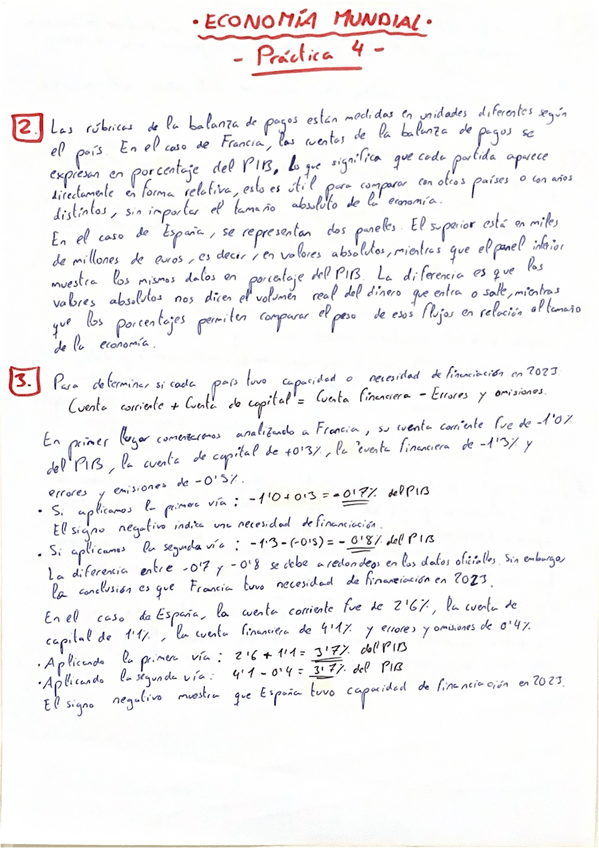 · ECONOMÍA MUNDIAL ·
- Práctica 4 -
2. Las rúbricas de la balanza de pagos están medidas en unidades diferentes según
el país. En el caso de Francia, las cuentas de la balanza de pagos se
expresan en porcentaje del PIB, lo que significa que cada partida aparece
directamente en forma relativa, esto es útil para comparar con otros países o con años
distintos, sin importar el tamaño absoluto de la economía.
En el caso de España, se representan dos paneles. El superior está en miles
de millones de euros, es decir, en valores absolutos, mientras que el panel inferior
muestra los mismos datos en porcentaje del PIB. La diferencia es que los
valores absolutos nos dicen el volumen real del dinero que entra o sale, mientras
que los porcentajes permiten comparar el peso de esos flujos en relación al tamaño
de la economía.
3. Para determinar si cada país tuvo capacidad o necesidad de financiación en 2023
Cuenta corriente + Cuenta de capital = Cuenta financiera - Errores y omisiones.
En primer lugar comenzaremos analizando a Francia, su cuenta corriente fue de -1'0%
del PIB, la cuenta de capital de +0'3%, la cuenta financiera de -1'3% y
errores y emisiones de -0'5%.
· Si aplicamos la primera vía: -1'0 + 0'3 = -0'7% del PIB
El signo negativo indica una necesidad de financiación.
· Si aplicamos la segunda vía: -1'3 - (-0'5) = -0'8% del PIB
La diferencia entre -0'7 y -0'8 se debe a redondeos en los datos oficiales. Sin embargo,
la conclusión es que Francia tuvo necesidad de financiación en 2023.
En el caso de España, la cuenta corriente fue de 2'6%, la cuenta de
capital de 1'1%, la cuenta financiera de 4'1% y errores y omisiones de 0'4%.
· Aplicando la primera vía: 2'6 + 1'1 = 3'7% del PIB
· Aplicando la segunda vía: 4'1 - 0'4 = 3'7% del PIB
El signo negativo muestra que España tuvo capacidad de financiación en 2023.